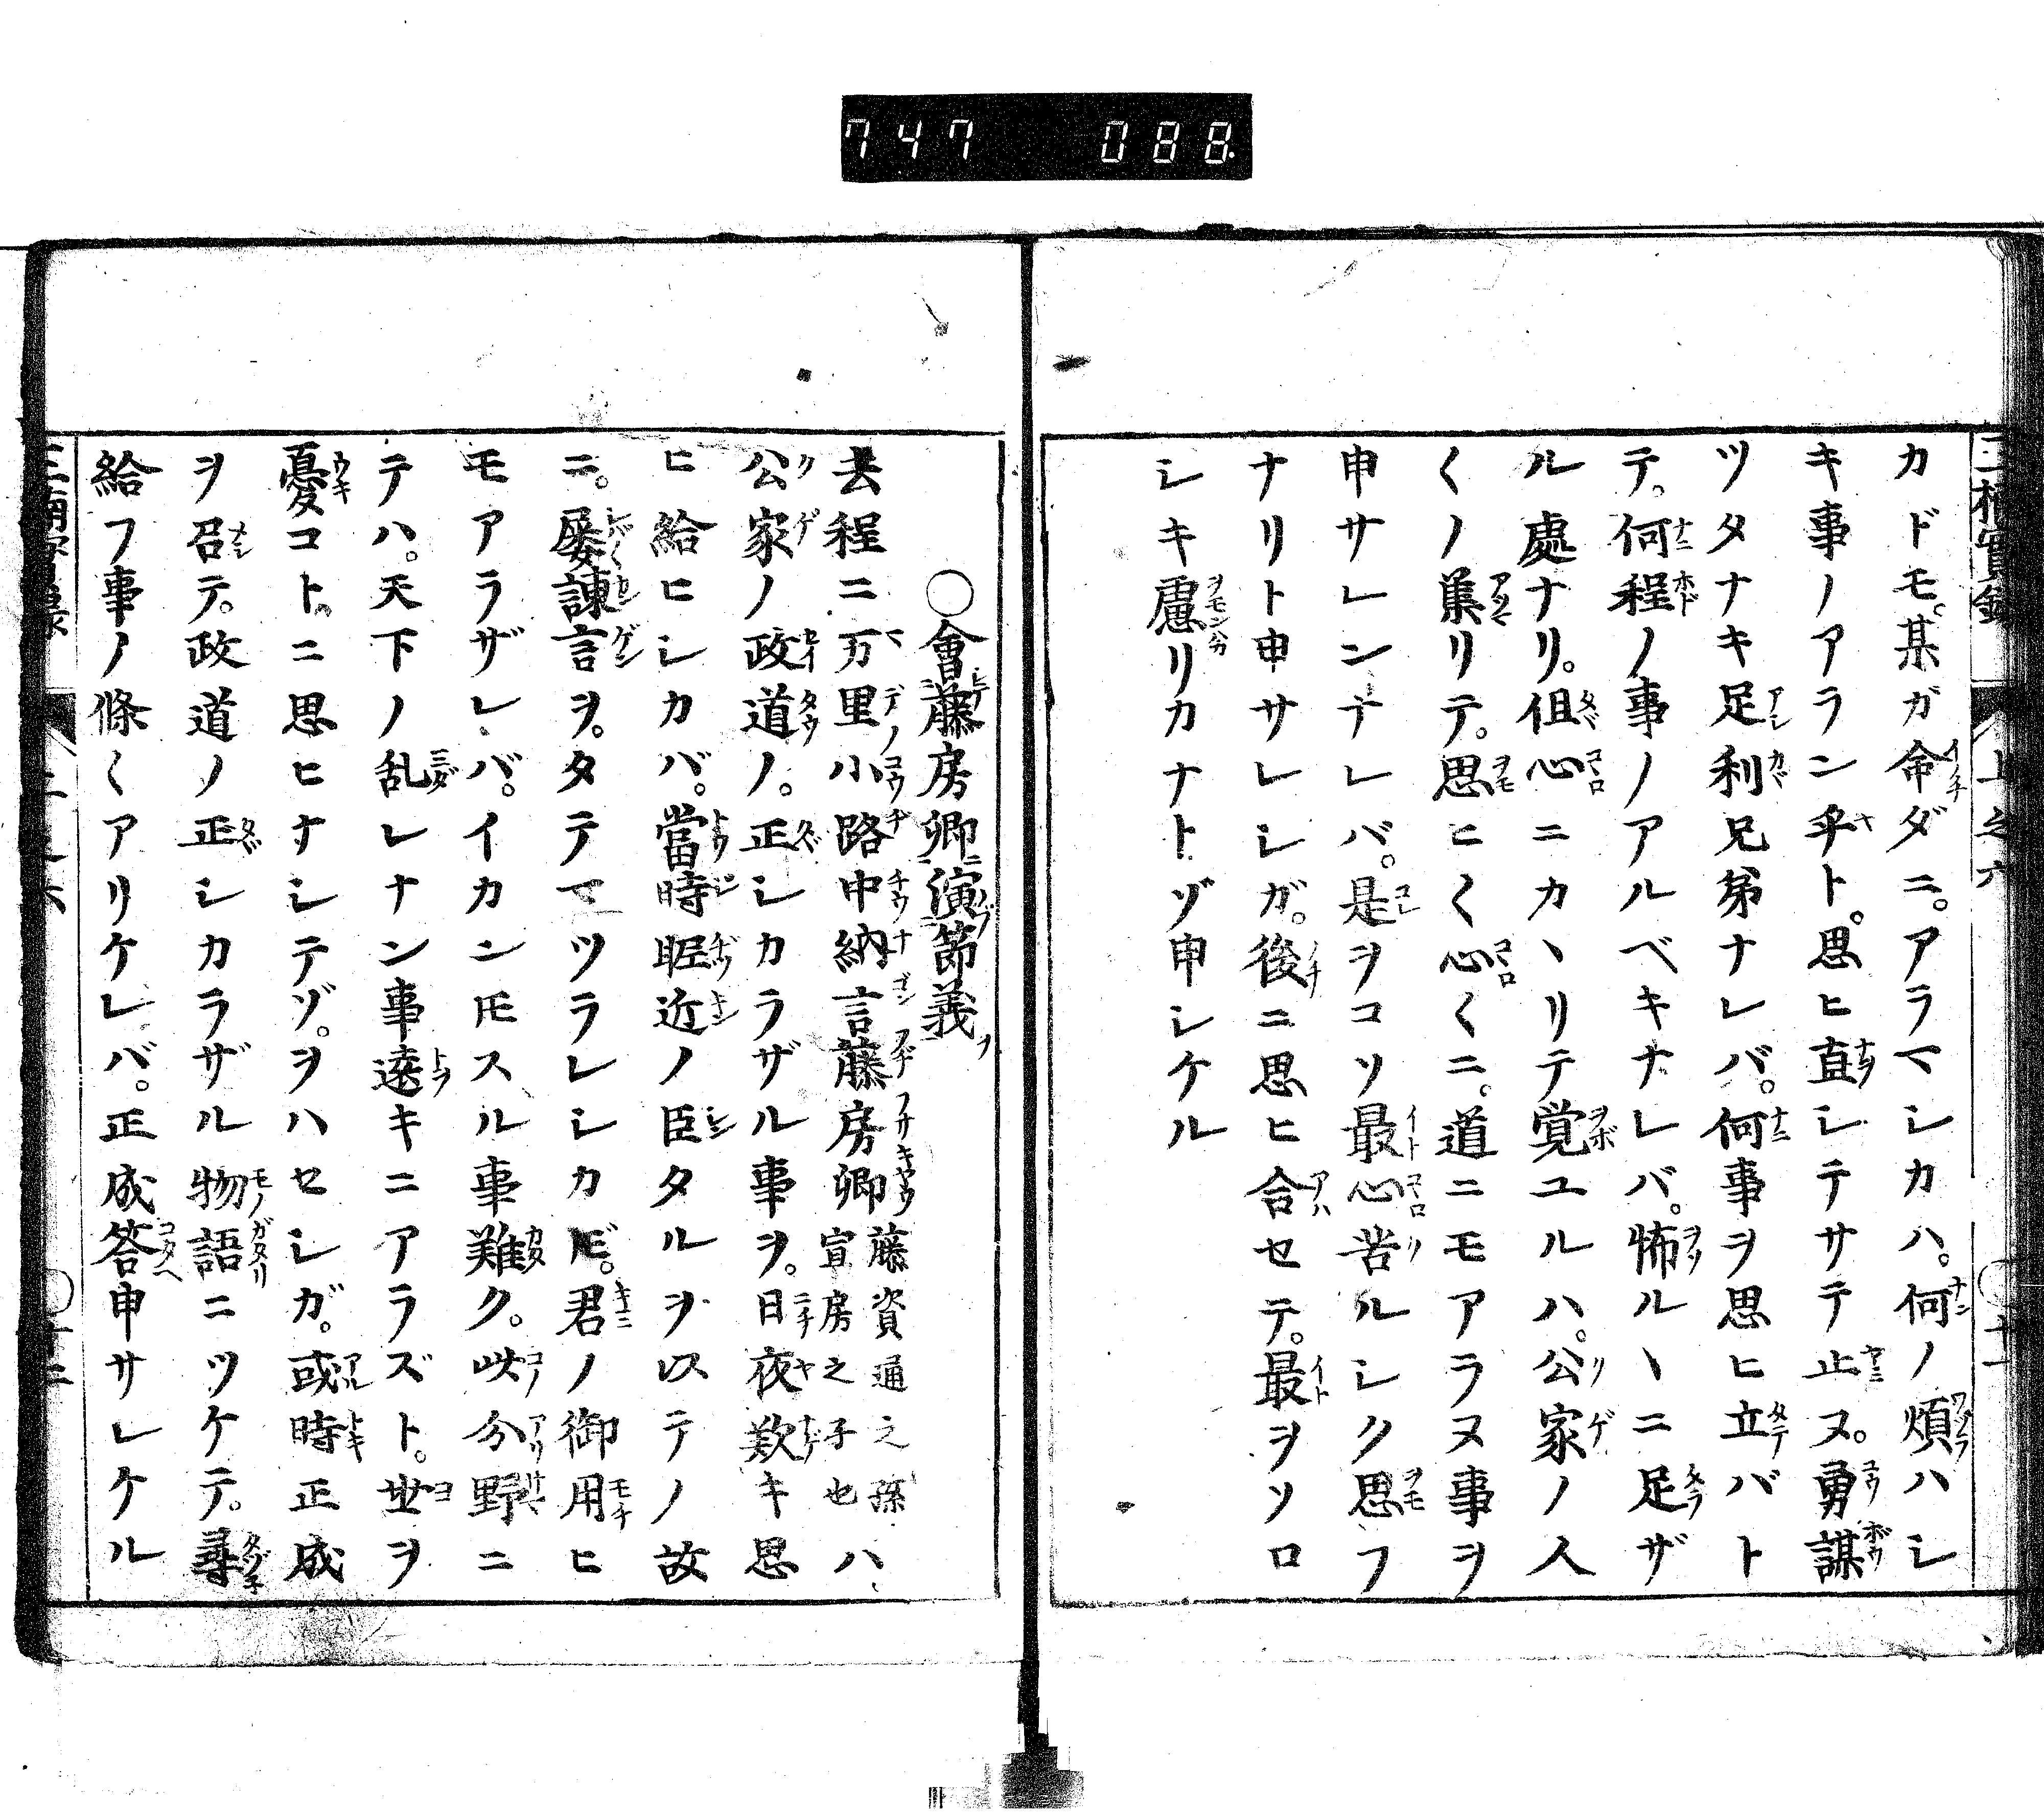 747 088.
カドモ。某ガ命ダニ。アラマシカハ。何ノ煩ハシ
キ事ノアラン乎ト。思ヒ直シテサテ止ヌ。勇謀
ツタナキ足利兄弟ナレバ。何事ヲ思ヒ立バト
テ。何程ノ事ノアルベキナレバ。怖ルヽニ足ザ
ル處ナリ。但心ニカヽリテ覚ユルハ。公家ノ人
〱ノ集リテ。思ヒ〱心〱ニ。道ニモアラヌ事ヲ
申サレンナレバ。是ヲコソ最心苦ルシク思フ
ナリト申サレシガ。後ニ思ヒ合セテ。最ヲソロ
シキ慮リカナトゾ申シケル
〇會藤房卿演節義
去程ニ万里小路中納言藤房卿藤資通之孫宣房之子也ハ
公家ノ政道ノ。正シカラザル事ヲ。日夜歎キ思
ヒ給ヒシカバ。當時昵近ノ臣タルヲ以テノ故
ニ。屡諌言ヲ。タテマツラレシカ𪜈。君ノ御用ヒ
モアラザレバ。イカン𪜈スル事難ク。此分野ニ
テハ。天下ノ乱レナン事遶キニアラズト。世ヲ
憂コト。ニ思ヒナシテゾ。ヲハセシガ。或時正成
ヲ召テ。政道ノ正シカラザル物語ニツケテ。尋
給フ事ノ條〱アリケレバ。正成答申サレケル